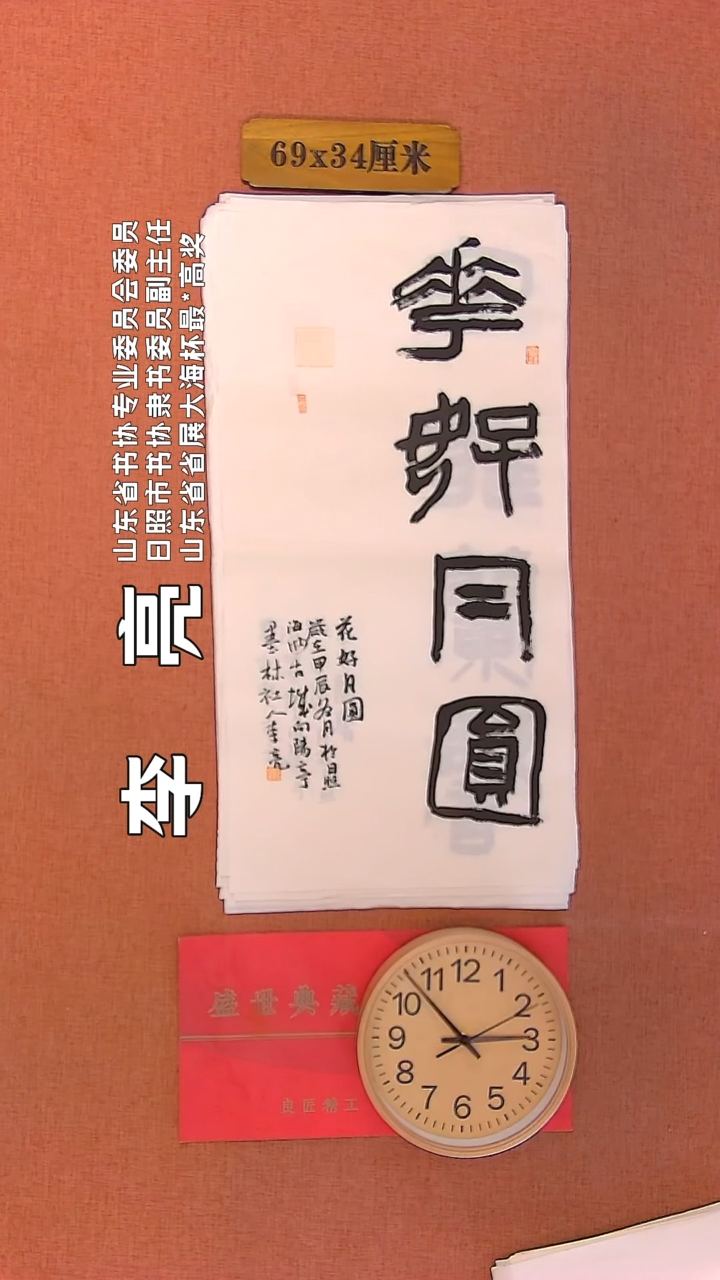 69x34厘米
山东省书协专业委员会委员
日照市书协隶书委员副主任
山东省省展大海杯最*高奖
李亮
华好月圆
花好月圆
歲在甲辰冬月於日照
海曲古城向陽亭
墨林社人李亮
盛世典藏
良匠精工
12
1
2
3
4
5
6
7
8
9
10
11